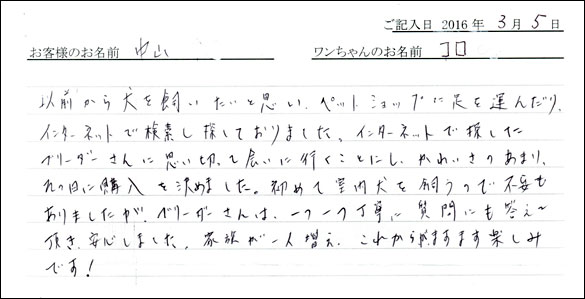 ご記入日 2016 年 3 月 5 日
お客様のお名前 中山 ワンちゃんのお名前 コロ
以前から犬を飼いたいと思い、ペットショップに足を運んだり、
インターネットで検索し探しておりました。インターネットで探した
ブリーダーさんに思い切って会いに行くことにし、かわいさのあまり、
その日に購入を決めました。初めて室内犬を飼うので不安も
ありましたが、ブリーダーさんは、一つ一つ丁寧に質問にも答えて
頂き、安心しました。家族が一人増え、これからがますます楽しみ
です!